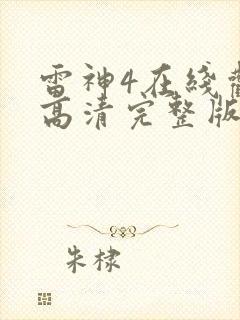 雷神4在线
高清完整版
朱棣